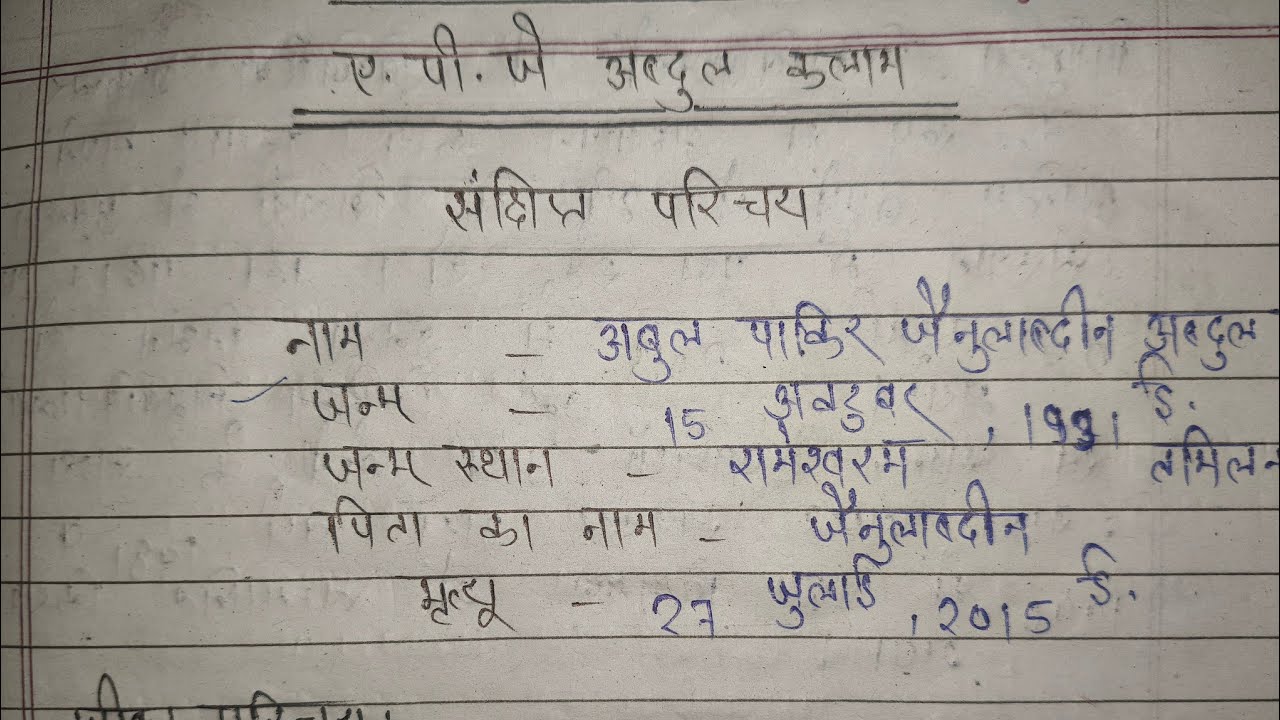 ए. पी. जे अब्दुल कलाम
संक्षिप्त परिचय
नाम - अबुल पाकिर जैनुलाब्दीन अब्दुल
जन्म - 15 अक्टुबर, 1931 ई.
जन्म स्थान - रामेश्वरम तमिलन
पिता का नाम - जैनुलाब्दीन
मृत्यू - 27 जुलाई, 2015 ई.